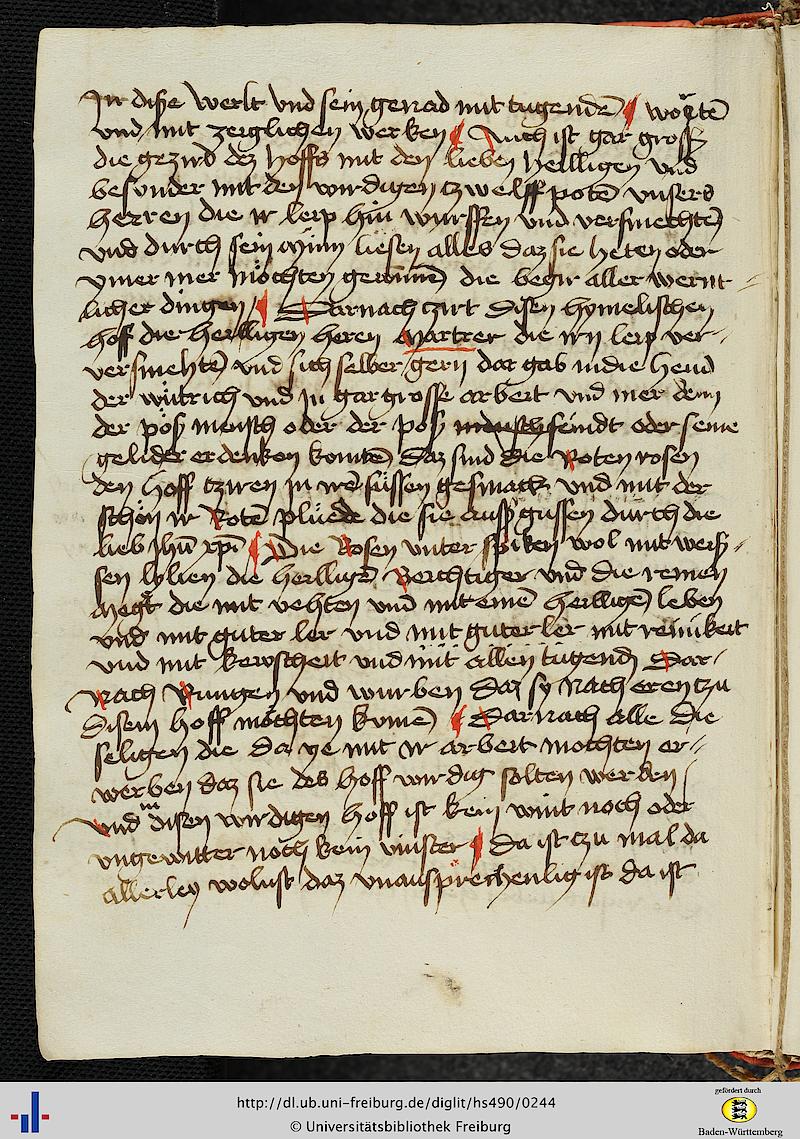 In diße werlt vnd sein genad mit tugendē worten
vnd mit zeiglichen werken Auch ist gar gross
die gezird dez hoffs mit den lieben heilligen vnd
besunder mit den wirdigen czwelffpotē vnsers
herren die ir leip hin wurffen vnd versmechten
vnd durch sein mynn liesen alles daz sie heten oder
ymer mer möchten gewinnē die begir aller wernt
licher dingen Darnach czirt disen hymelischen
hoff die heilligen heren Martrer die irn leip ver-
versmehtē vnd sich selber gern dar gab in die hend
der wütrich vnd in gar grosse arbeit vnd mer denn
der pöß mensch oder der pöß feindt oder seine
gelider erdenken kontē Daz sind die Roten rosen
den hoff cziren in irē süssen gesmack vnd mit der
schön ir Rotē pluede die sie auß gussen durch die
lieb ihū xpī Die Rosen vnter spiken wol mit weiß-
sen lylien die heilligē Peichtiger vnd die reinen
Megt die mit vehten vnd mit einē heilligē leben
vnd mit guter ler vnd mit guter ler mit reinikeit
vnd mit kewscheit vnd mit allen tugend Dar-
nach Rungen vnd wurben daz sy nach eren czu
disem hoff möchten kumē Darnach alle die
seligen die da ye mit ir arbeit mochten er-
werben daz sie des hoff wirdig solten werden
vnd im disen wirdigen hoff ist kein wint noch oder
vngewitter noch kein vinster Da ist czu mal da
allerley wolust daz vnaussprechenlig ist da ist
http://dl.ub.uni-freiburg.de/diglit/hs490/0244
© Universitätsbibliothek Freiburg
gefördert durch
Baden-Württemberg